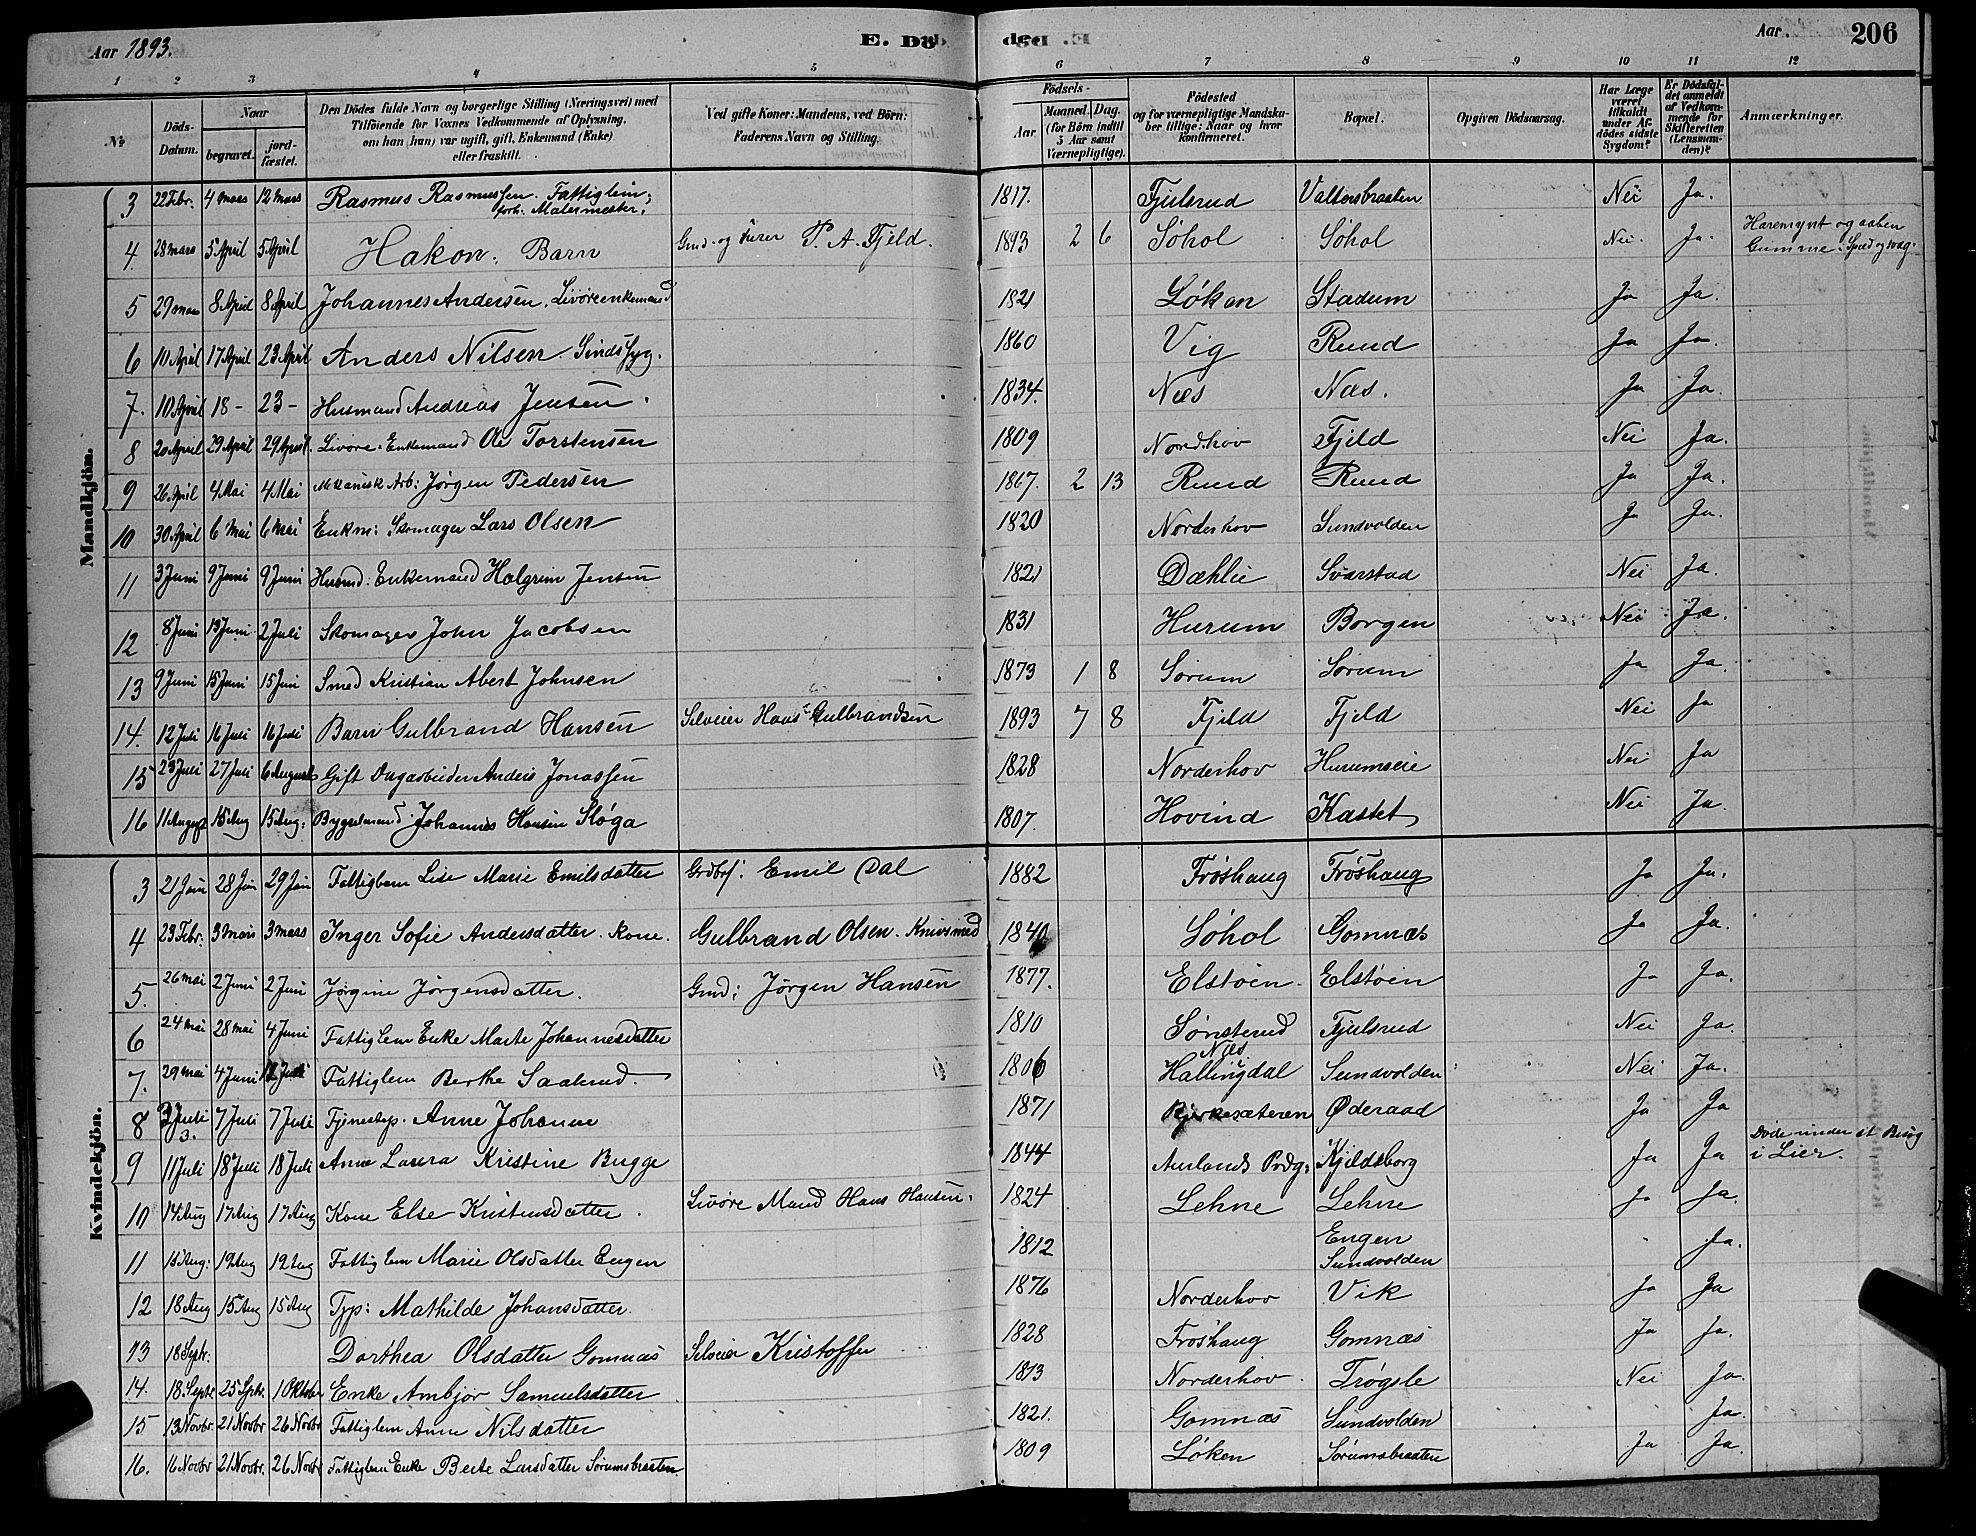 Aar 1893. E. Dø de. Aar . 206
1 2 3 4 5 6 7 8 9 10 11 12
№ Döds-Datum. Naar begravet. jord-fæstet. Den Dödes fulde Navn og borgerlige Stilling (Næringsvei) med Tilföiende for Voxnes Vedkommende af Oplysning, om han (hun) var ugift, gift, Enkemand (Enke) eller fraskilt. Ved gifte Koner: Mandens, ved Börn: Faderens Navn og Stilling. Födsels- Aar Maaned. Dag. (for Börn indtil 5 Aar samt Værnepligtige). Födested og for værnepligtige Mandskaber tillige: Naar og hvor konfirmeret. Bopæl. Opgiven Dödsaarsag. Har Læge været tilkaldt under Afdödes sidste Sygdom? Er Dödsfaldet anmeldt af Vedkommende for Skifteretten (Lensmanden)? Anmærkninger.
Mandkjön.
3 22 Febr. 4 Mars 12 Mars Rasmus Rasmussen. Fattiglem; forh. Malermester. 1817. Fjulsrud Valtersbraaten Nei Ja.
4. 28 mars 5 April 5 April Hakon. Barn Gmd. og Furer P. A. Fjeld. 1893 2 6 Söhol Söhol Nei. Ja. Haremynt og aaben Gumme. Spæd og svag.
5 29 mars 8 April 8 April Johannes Andersen. Livöreenkemand 1821 Löken Stadum Ja Ja.
6 10 April 17 April 23 April Anders Nilsen. Sindssyg. 1860 Vig Rund Ja Ja.
7. 10 April 18 - 23 - Husmand Andreas Jensen. 1834. Næs Næs. Ja Ja.
8 20 April 29 April 29 April. Livöre- Enkemand Ole Torstensen 1809 Norderhov Fjeld Nei Ja.
9 26 April 4 Mai 4 Mai Mekanisk Arb: Jörgen Pedersen 1867. 2 13 Rund Rund Ja Ja.
10 30 April 6 Mai 6 Mai Enkm: Skomager Lars Olsen 1820 Norderhov Sundvolden Ja Ja.
11 3 Juni 9 Juni 9 Juni Husmd: Enkemand Halgrim Jensen 1821 Dæhlie Svarstad Nei Ja.
12 8 Juni 13 Juni 2 Juli Skomager John Jacobsen 1831 Hurum Borgen Nei Ja.
13 9 Juni 15 Juni 15 Juni Smed Kristian Abert Johnsen 1873 1 8 Sörum Sörum Ja Ja.
14. 12 Juli 16 Juli 16 Juli Barn Gulbrand Hansen Selveier Hans Gulbrandsen 1893 7 8 Fjeld Fjeld Nei Ja
15 23 Juli 27 Juli 6 August Gift Dagarbeider Anders Jonassen 1828 Norderhov Hurumseie Nei Ja
16 11 August 15 Aug 15 Aug: Bygselmand Johannes Hansen Sköga 1807. Hovind Kastet Nei Ja.
Kvindekjön.
3 21 Jan 28 Jan 29 Jan Fattiglem Lise Marie Emilsdatter Grdbrf: Emil Dal 1882 Fröshaug Fröshaug Ja Ja.
4 23 Febr: 3 mars 3 mars Inger Sofie Andersdatter. Kone. Gulbrand Olsen. Knivsmed 1840 Söhol Gomnæs Ja Ja.
5. 26 mai 2 Juni 2 Juni Jörgine Jörgensdatter. Gmd: Jörgen Hansen 1877. Elstöen Elstöen Ja Ja.
6 24 mai 28 mai 4 Juni Fattiglem Enke Marte Johannesdatter 1810 Sönsterud Fjulsrud Nei Ja.
7. 29 mai 4 Juni 12 Juli Fattiglem Berthe Saakrud. 1806 Næs Hallingdal Sundvolden Nei Ja.
8 3 Juli 3. 7 Juli 7 Juli Tjenestep. Anne Johanne 1871 Bjerkesæteren Öderaad Ja Ja
9 11 Juli 18 Juli 18 Juli Anne Laura Kristine Bugge 1844 Aurlands Prdg: Kjeldsborg Ja Ja Döde under et Besög i Lier.
10 14 Aug 17 Aug 17 Aug Kone Else Kristensdatter. Livöre Mand Hans Hansen. 1824 Lehne Lehne Ja Ja.
11 15 Aug: 19 Aug 19 Aug Fattiglem Marie Olsdatter Engen 1812 Engen Sundvolden Ja.
12 18 Aug 15 Aug 15 Aug Typ: Mathilde Johansdatter. 1876 Norderhov Vik Ja Ja
13 18 Septr: Dorthea Olsdatter Gomnæs Selveier Kristoffer 1828 Fröshaug Gomnæs Ja Ja.
14. 18 Septr 25 Sptr. 1 Oktober Enke Ambjör Samuelsdatter 1813 Norderhov. Trögsle Nei Ja.
15 13 Novbr. 21 Novbr 26 Novbr Fattiglem Anne Nilsdatter 1821. Gomnæs Sundvolden Ja.
16. 16 Novbr 21 Novbr. 26 Novbr Fattiglem Enke Berte Larsdatter Sörumsbraaten 1809 Löken Sörumsbraaten Ja Ja.